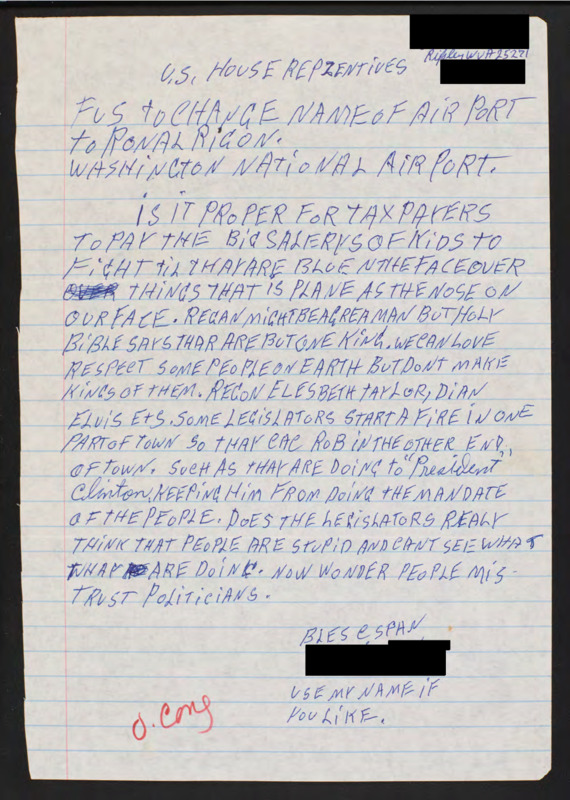 Ripley WVA 25271
U.S. HOUSE REPZENTIVES
FUS to CHANGE NAME OF AIR PORT
to RONAL RIGON.
WASHINGTON NATIONAL AIRPORT.
IS IT PROPER FOR TAXPAYERS
TO PAY THE BIG SALERYS OF KIDS TO
FIGHT TIL THAY ARE BLUE N THE FACE OVER
THINGS THAT IS PLANE AS THE NOSE ON
OUR FACE. REGAN MIGHT BE A GREA MAN BUT HOLY
BIBLE SAYS THAR ARE BUT ONE KING. WE CAN LOVE
RESPECT SOME PEOPLE ON EARTH BUT DONT MAKE
KINGS OF THEM. REGON ELESBETH TAYLOR, DIAN
ELVIS ETS. SOME LEGISLATORS START A FIRE IN ONE
PART OF TOWN SO THAY CAC ROB IN THE OTHER END
OF TOWN. SUCH AS THAY ARE DOING to "President"
Clinton, KEEPING HIM FROM DOING THE MANDATE
OF THE PEOPLE. DOES THE LEGISLATORS REALY
THINK THAT PEOPLE ARE STUPID AND CANT SEE WHAT
THAY ARE DOING. NOW WONDER PEOPLE MIS-
TRUST POLITICIANS.
BLES C. SPAN
USE MY NAME IF
YOU LIKE.
O. Cong